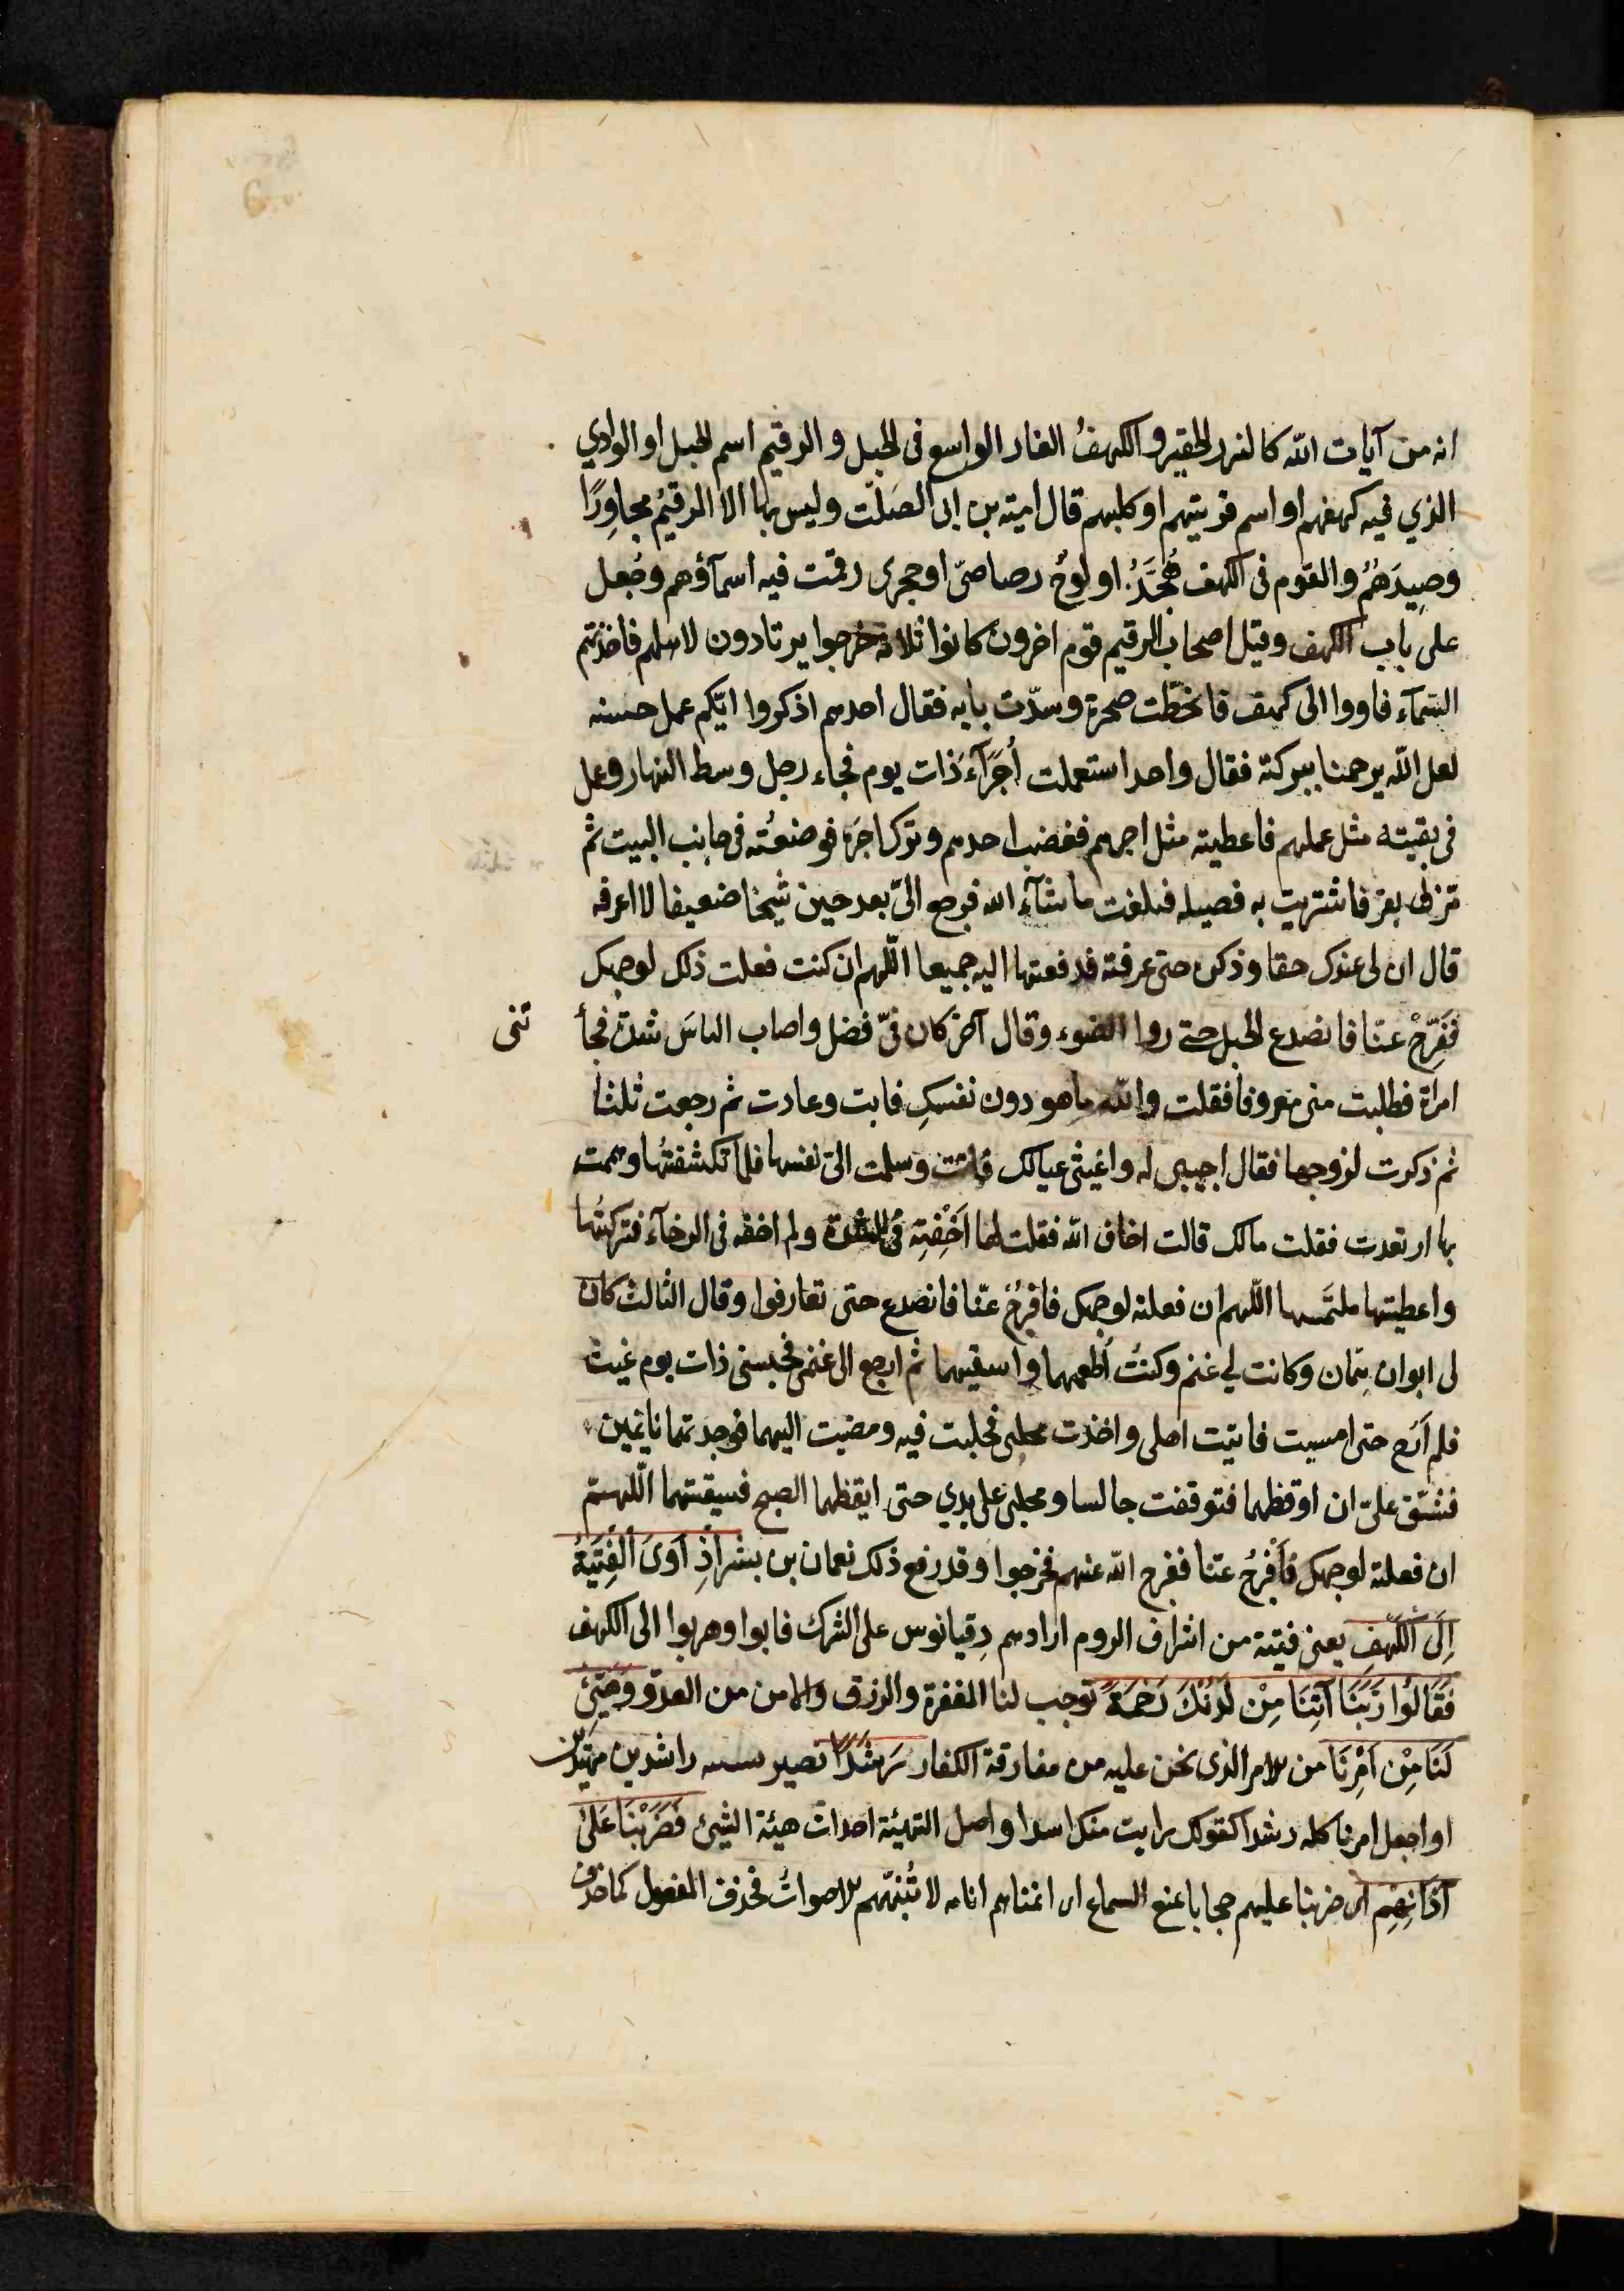 انه من آيات الله كالنزر الحقير والكهفُ الغار الواسع فى الجبل والرقيم اسم الجبل او الوادي
الذي فيه كهفهم او اسم قريتهم او كلبهم قال امية بن ابى الصَلت وليس بها الا الرقيمُ مجاوِرًا
وصِيدَهُمُ والقوم فى الكهف هُجَّدُ. او لوحٌ رصاصىّ او حجرى رقمت فيه اسمآؤهم وجُعل
على باب الكهف وقيل اصحاب الرقيم قوم اخرون كانوا ثلاثة خرجوا يرتادون لاهلهم فاخذتهم
السّمآء فاووا الى كهف فانحطّت صخرة وسدّت بابه فقال احدهم اذكروا ايّكم عمل حسنه
لعل الله يرحمنا ببركته فقال واحد استعملت أُجَرَآءَ ذات يوم فجاء رجل وسط النهار وعمل
فى بقيته مثل عملهم فاعطيته مثل اجرهم فغضب احدهم وترك اجرَه فوضعتُه فى جانب البيت ثم
مَرّ بى بقر فاشتريت به فصيله فبلغت ما شآء الله فرجع الىّ بعد حين شيخا ضعيفا لا اعرفه
قال ان لى عندك حقا وذكره حتى عرفته فدفعتها اليه جميعا اللّهم ان كنت فعلت ذلك لوجهك
فَفَرِّجْ عنّا فانصدع الجبل حتى روا الضوء وقال آخر كان فىّ فضل واصاب الناسَ شدة فجأ تنى
امراة فطلبت منى معروفا فقلت والله ما هو دون نفسكِ فابت وعادت ثم رجعت ثلثا
ثم ذكرت لزوجها فقال اجيبى له واغيثى عيالك فاتت وسلمت الىّ نفسها فلما تكشفتُها وهممت
بها ارتعدت فقلت مالك قالت اخاف الله فقلت لها اَخِفْتِهِ فى الشدة ولم اخفه فى الرخآء فتركتُها
واعطيتها ملتمَسها اللّهم ان فعلته لوجهك فافرجْ عنّا فانصدع حتى تعارفوا وقال الثالث كان
لى ابوان هِمّان وكانت لي غنم وكنتُ اُطعمهما واسقيهما ثم ارجع الى غنمى فحبسنى ذات يوم غيث
فلم اَرُح حتى امسيت فاتيت اهلى واخذت محلبى فحلبت فيه ومضيت اليهما فوجدتهما نايمين
فشقّ علىّ ان اوقظهما فتوقفت جالسا ومحلبى على يدي حتى ايقظهما الصبح فسقيتهما اللّهمّ
ان فعلته لوجهك فَاَفْرجْ عنّا ففرج الله عنهم فخرجوا وقد رفع ذلك نعمان بن بشير اِذِ أوَىَ الْفِتْيَةُ
اِلَى الْكَهْفِ يعنى فتية من اشراف الروم ارادهم دِقيانوس على الشرك فابوا وهربوا الى الكهف
فَقَالُوْا رَبَّنَا آتِنَا مِنْ لَدُنْكَ رَحْمَةً توجب لنا المغفرة والرزق والامن من العدوّ وَهَيِّئْ
لَنَا مِنْ اَمْرِنَا من الامر الذى نحن عليه من مفارقة الكفار رَشَدًا نصير بسببه راشدين مهتدين
او اجعل امرنا كله رشدا كقولك رايت منك اسدا واصل التهيئة احداث هيئة الشيئ فَضَرَبْنَا عَلَىَ
آذَانِهِمْ اى ضربنا عليهم حجابا يمنع السماع اى انمناهم انامه لا تُنبّههم الاصواتُ فحذف المفعول كما حذف